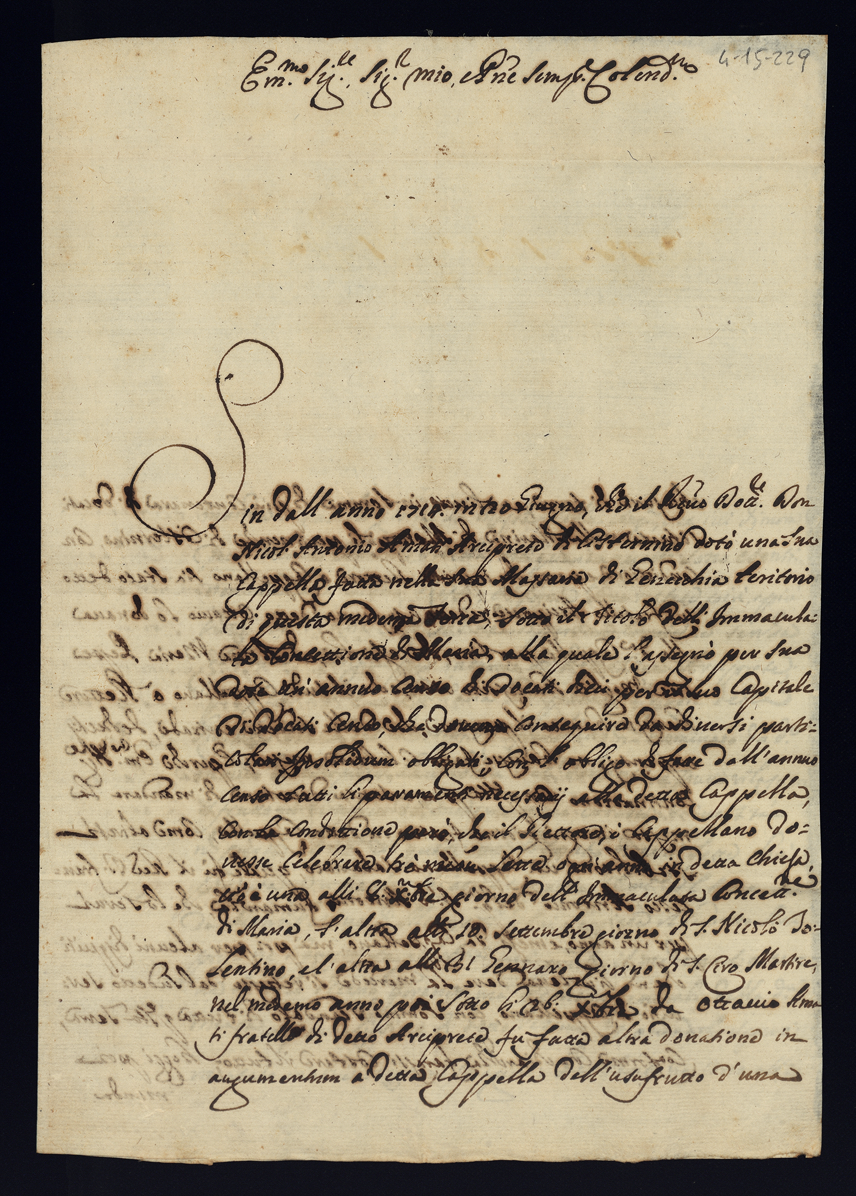 4-15-229
Em.mo Sig.re, Sig.r mio, e Pne semp.e Colend.mo
Sin dall'anno 1718. Giugno, il Dott.re Don
Nicol'Antonio Amati Arciprete di Cisternino dotò una sua
Cappella fatta nella sua Massaria di teritorio
di questa medema Terra, sotto il titolo dell'Immacula-
ta Concettione di Maria, alla quale l'assegnò per sua
dote un'annuo Censo di docati dieci per Capitale
di docati Cento, da diversi parti-
colari insolidum obligati, con l'obligo di fare dall'annuo
Censo tutti li paramenti necessarij alla detta Cappella,
con la Conditione però, che il Rettore, ò Cappellano do-
vesse Celebrare trè messe lette ogni anno in detta Chiesa,
cioè una alli 8 Xbre giorno dell'Immaculata Concett.ne
di Maria, l'altra alli 10. settembre giorno di S. Nicolò To-
lentino, e l'altra alli 31 Gennaro giorno di S. Ciro Martire,
nel medemo anno poi sotto li 26. Xbre da Ottavio Ama
ti fratello di detto Arciprete fù fatta altra donatione in
augumentum à detta Cappella dell'usufrutto d'una